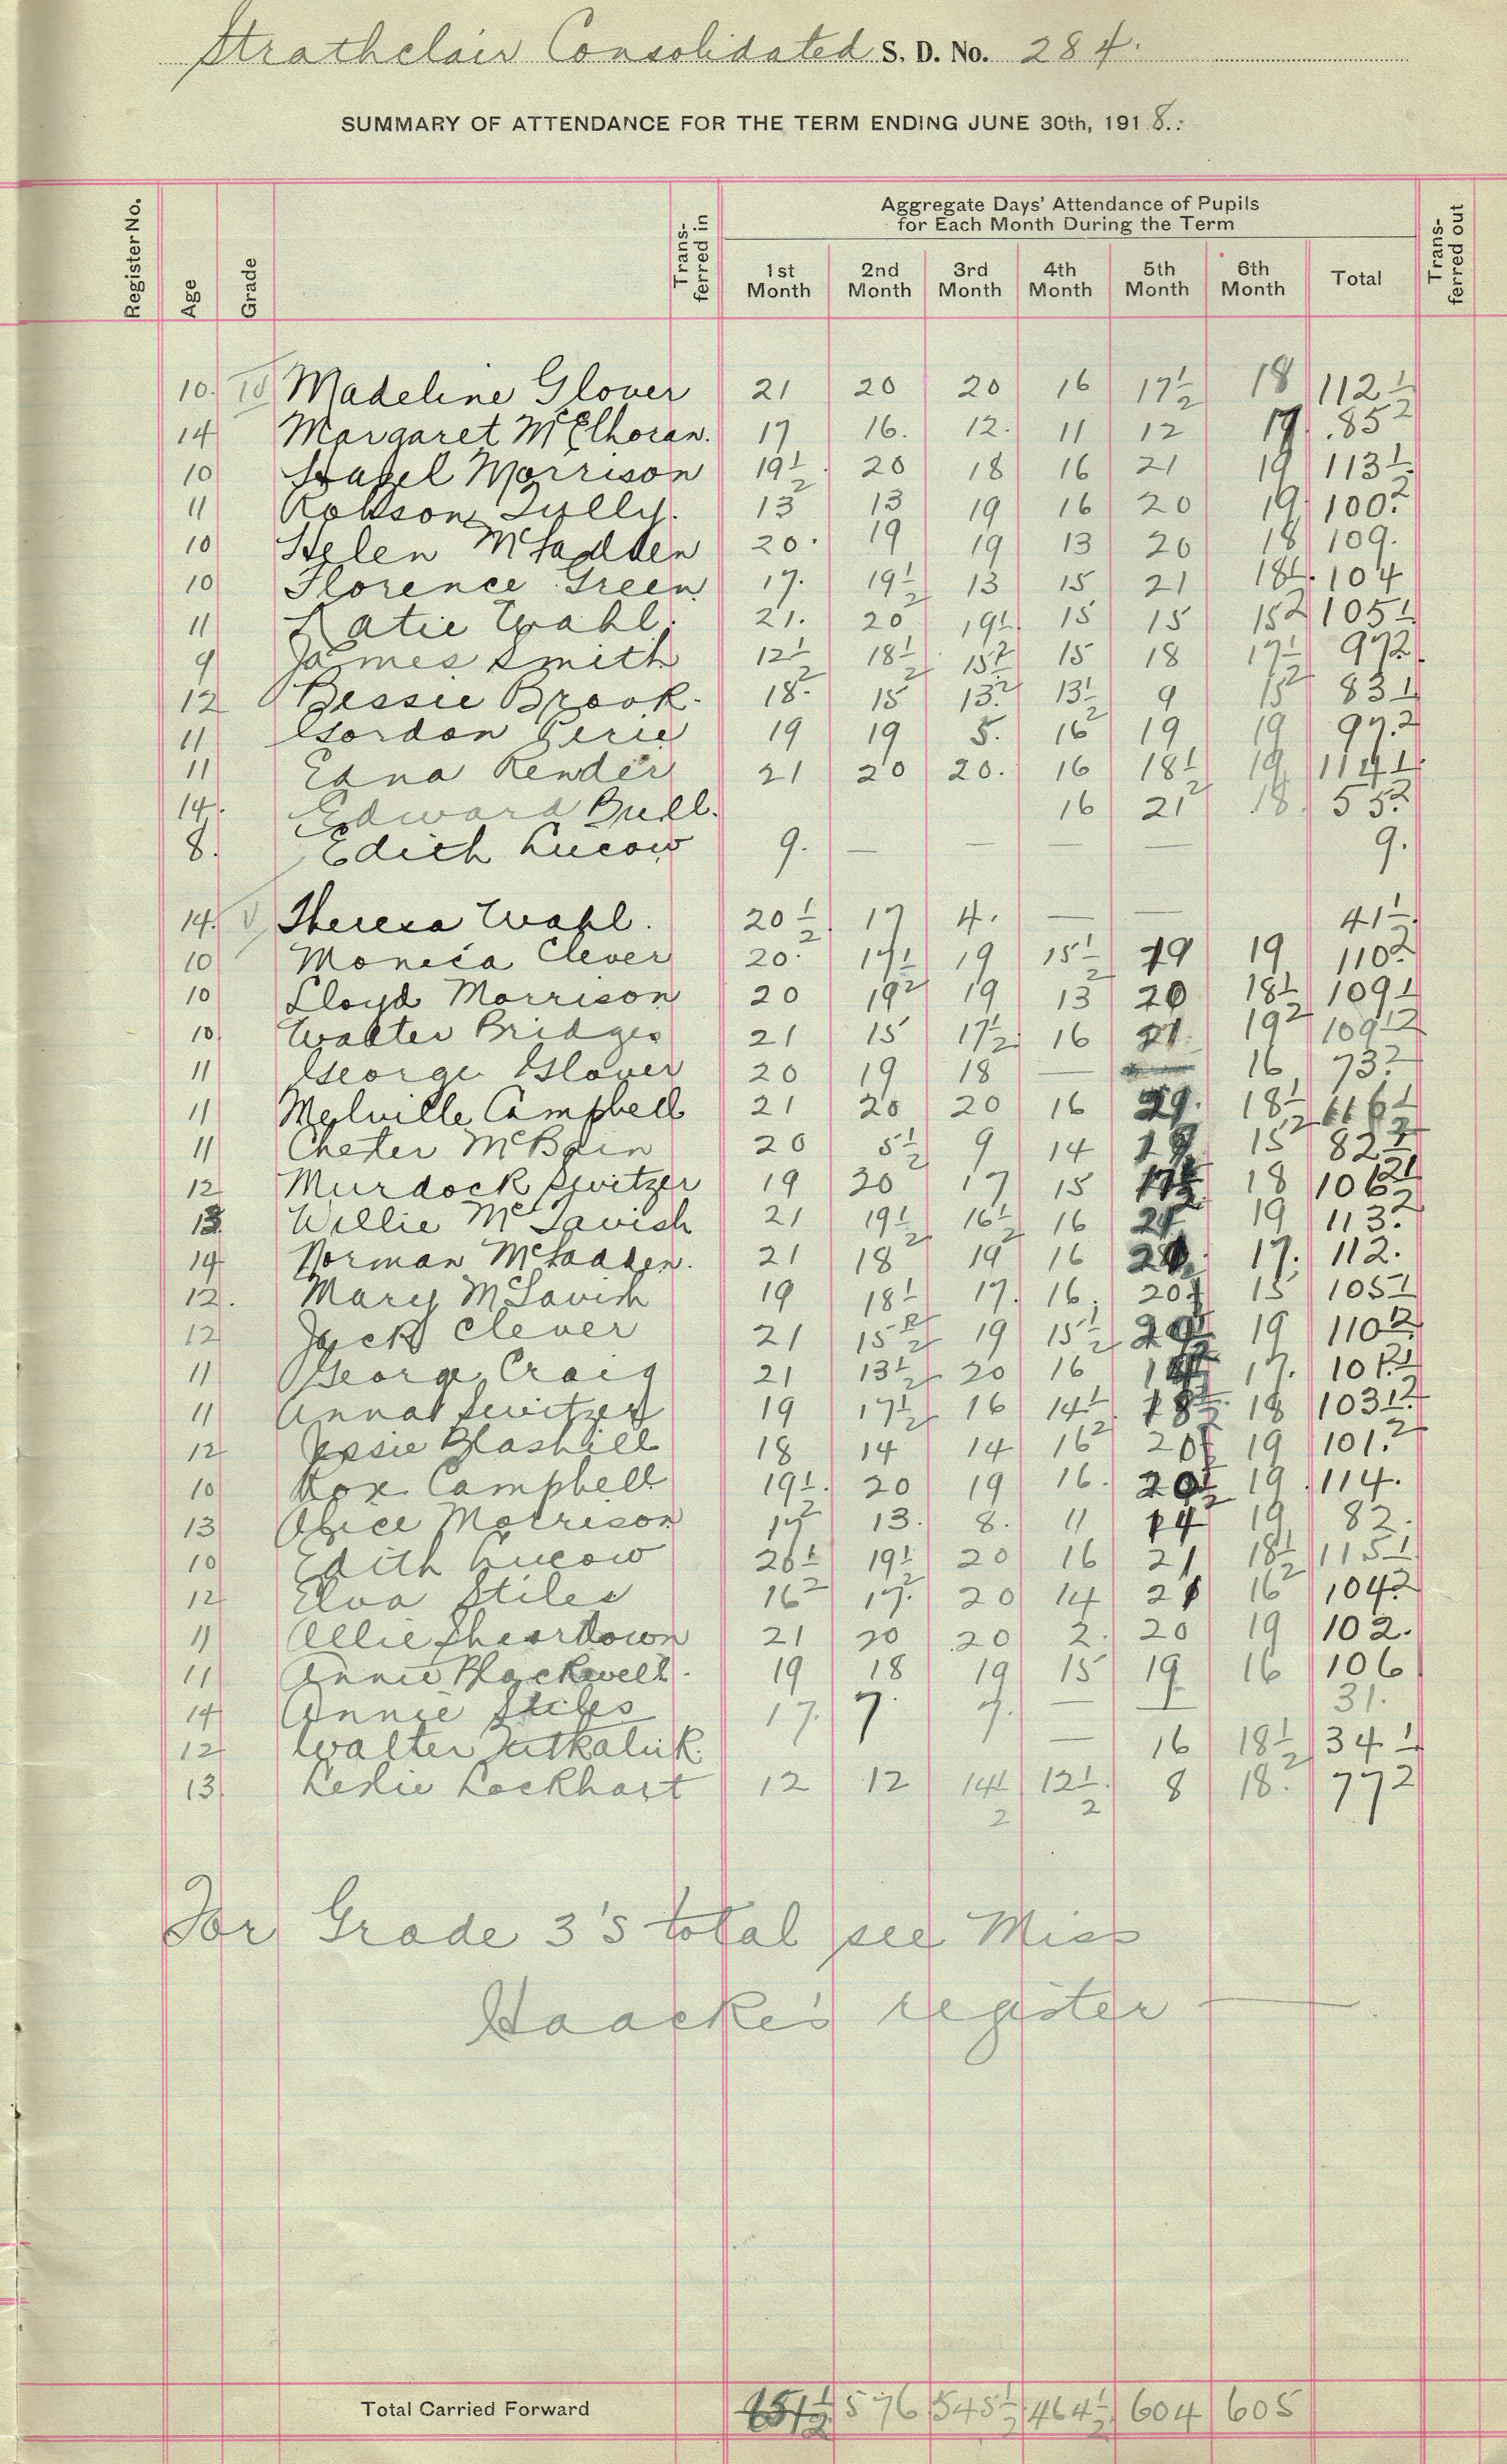 Strathclair Consolidated S. D. No. 284.
SUMMARY OF ATTENDANCE FOR THE TERM ENDING JUNE 30th, 1918.
Register No. Age Grade Transferred in Aggregate Days' Attendance of Pupils for Each Month During the Term Transferred out
1st Month 2nd Month 3rd Month 4th Month 5th Month 6th Month Total
10. IV Madeline Glover 21 20 20 16 17½ 18 112½
14 Margaret McElhoran. 17 16. 12. 11 12 17. 85
10 Hazel Morrison 19½ 20 18 16 21 19 113½
11 Robson Tully. 13 13 19 16 20 19. 100.
10 Helen McFadden 20. 19 19 13 20 18 109.
10 Florence Green 17. 19½ 13 15 21 18½. 104
11 Katie Wahl. 21. 20 19½. 15 15 15 105½
9 James Smith 12½ 18½ 15½ 15 18 17½ 97.
12 Bessie Brook. 18. 15 13. 13½ 9 15 83½
11 Gordon Perie 19 19 5. 16 19 19 97.
11 Edna Render 21 20 20. 16 18½ 19 114½.
14. Edward Bull. 16 21 18. 55.
8. Edith Lucow 9. — — — — 9.
14. V Theresa Wahl. 20½ 17 4. — — 41½.
10 Monica Clever 20. 17½ 19 15½ 19 19 110.
10 Lloyd Morrison 20 19 19 13 20 18½ 109½
10. Walter Bridges 21 15 17½. 16 21 19 109½
11 George Glover 20 19 18 — — 16 73.
11 Melville Campbell 21 20 20 16 18½ 116½
11 Chester McBain 20 5½ 9 14 19 15 82½
12 Murdock Switzer 19 20 17 15 17½ 18 106½
13 Willie McTavish 21 19½ 16½ 16 21 19 113.
14 Norman McFadden. 21 18 19 16 17. 112.
12. Mary McTavish 19 18½ 17. 16. 20 15 105½
12 Jack Clever 21 15½ 19 15½ 19 110½
11 George Craig 21 13½ 20 16 17. 101½
11 Anna Switzer 19 17½ 16 14½ 18½ 18 103½.
12 Jessie Blashill 18 14 14 16 20 19 101.
10 Rox Campbell 19½. 20 19 16. 20½ 19. 114.
13 Alice Morrison 17 13. 8. 11 14 19 82.
10 Edith Lucow 20½ 19½ 20 16 21 18½ 115½
12 Elva Stiles 16 17. 20 14 21 16 104.
11 Allie Sheardown 21 20 20 2. 20 19 102.
11 Annie Blackwell. 19 18 19 15 19 16 106
14 Annie Stiles 17. 7. 7. — — 31.
12 Walter — 16 18½ 34½
13. Leslie Lockhart 12 12 14½ 12½. 8 18. 77
For Grade 3's total see Miss
Haacke's register —
Total Carried Forward 651½ 576 545½ 464½ 604 605